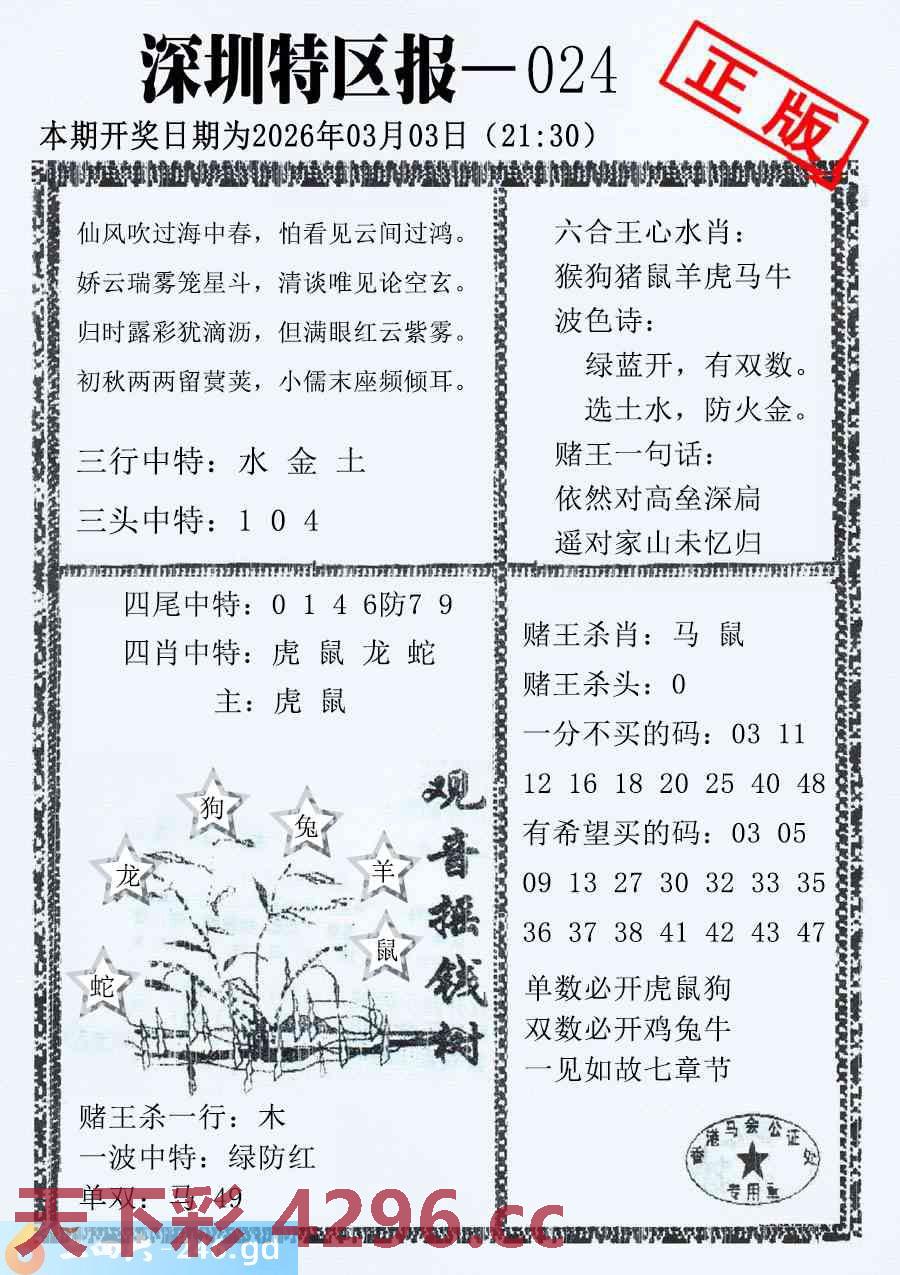 深圳特区报—024
正版
本期开奖日期为2026年03月03日（21:30）
仙风吹过海中春，怕看见云间过鸿。
娇云瑞雾笼星斗，清谈唯见论空玄。
归时露彩犹滴沥，但满眼红云紫雾。
初秋两两留蓂荚，小儒末座频倾耳。
三行中特：水 金 土
三头中特：1 0 4
六合王心水肖：
猴狗猪鼠羊虎马牛
波色诗：
绿蓝开，有双数。
选土水，防火金。
赌王一句话：
依然对高垒深扃
遥对家山未忆归
四尾中特：0 1 4 6防7 9
四肖中特：虎 鼠 龙 蛇
主：虎 鼠
观音摇钱树
狗
兔
龙
羊
鼠
蛇
赌王杀一行：木
一波中特：绿防红
单双：马 49
赌王杀肖：马 鼠
赌王杀头：0
一分不买的码：03 11
12 16 18 20 25 40 48
有希望买的码：03 05
09 13 27 30 32 33 35
36 37 38 41 42 43 47
单数必开虎鼠狗
双数必开鸡兔牛
一见如故七章节
香港马会公证处
专用章
天下彩 4296.cc